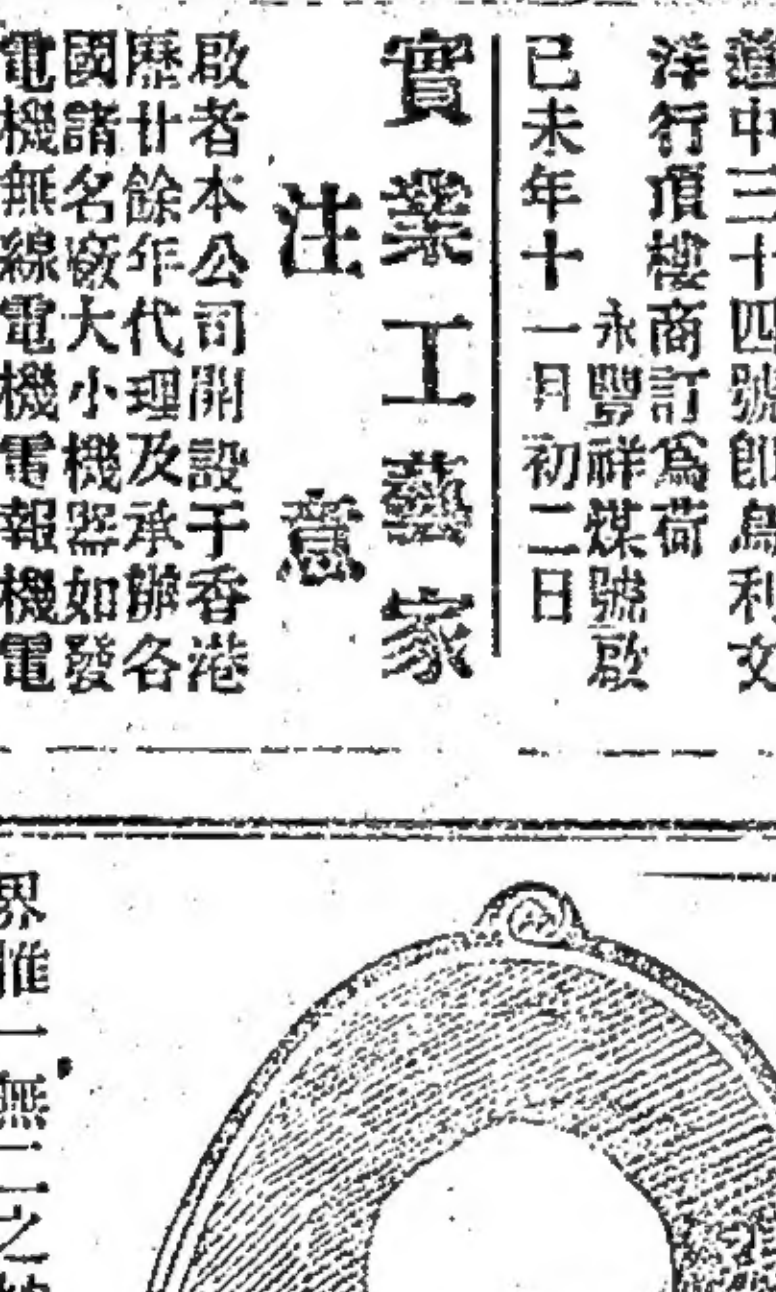 道中三十四號即烏利文
洋行頂樓商訂爲荷
永豐祥煤號啟
己未年十一月初二日
實業工藝家
注意
啟者本公司開設于香港
歷廿餘年代理及承辦各
國諸名廠大小機器如發
電機無線電機電報機電
界惟一無二之